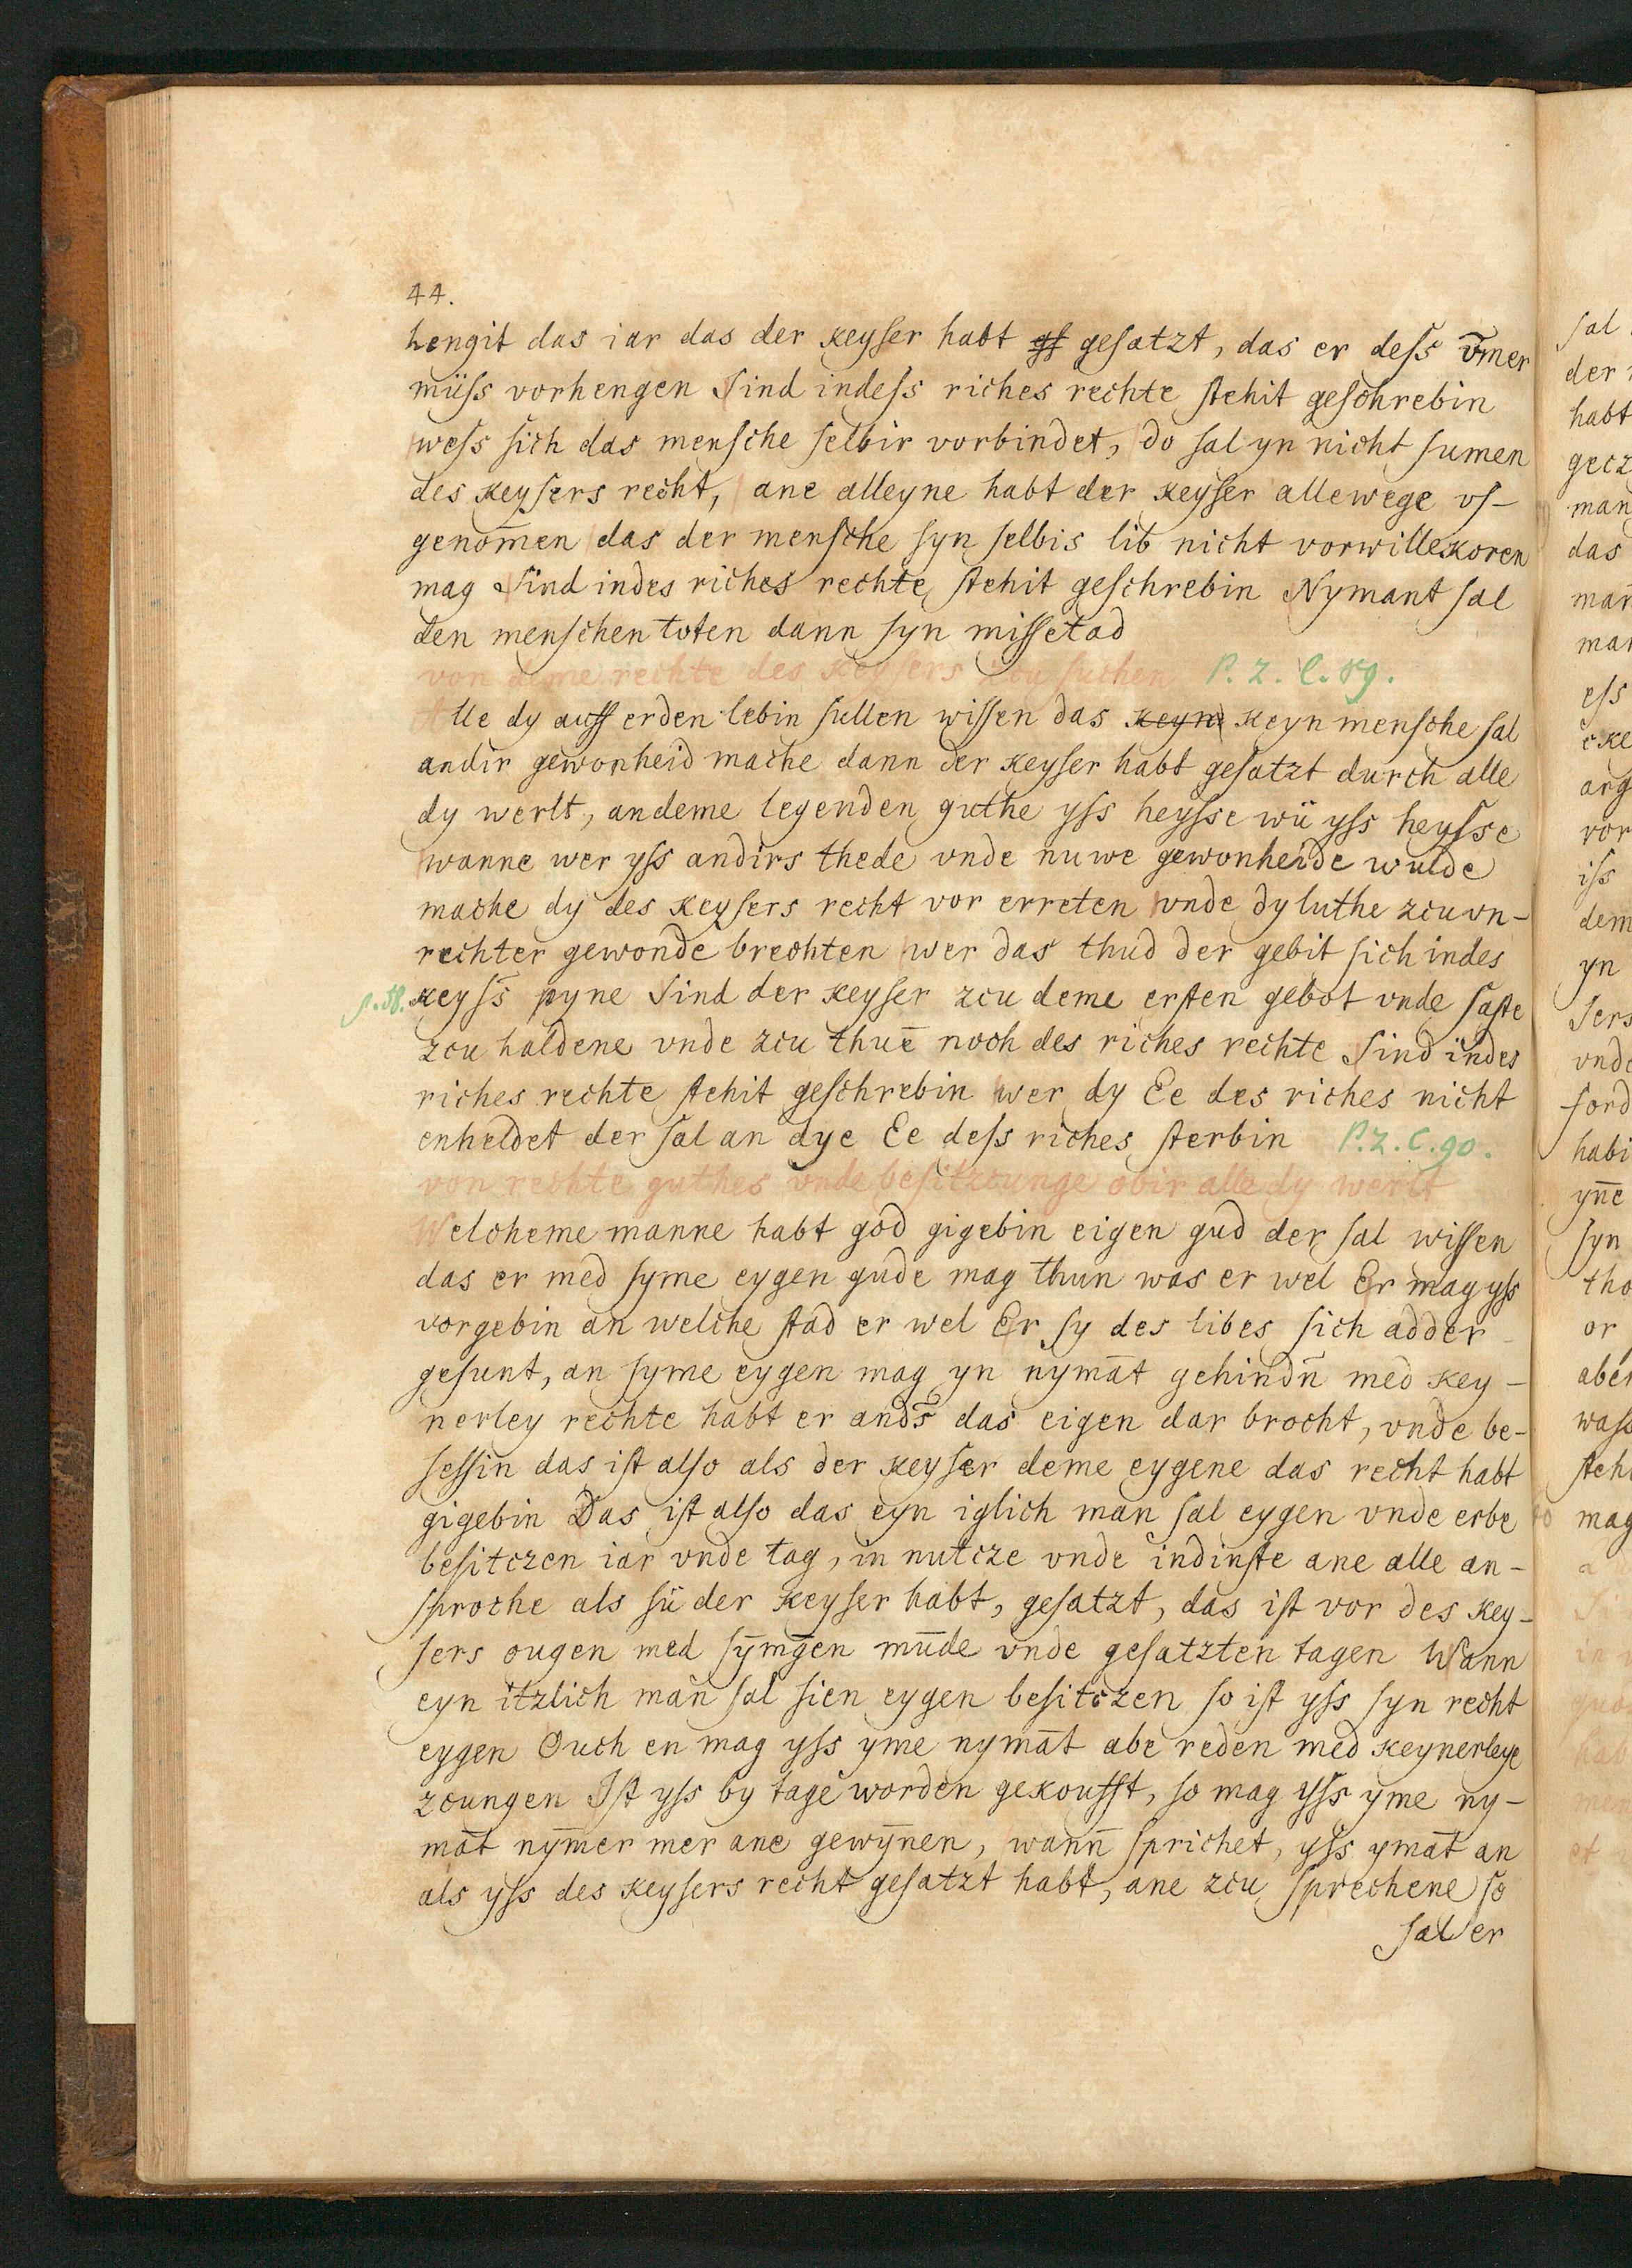 44.
hengit das iar das der keyſer habt gſ geſatzt, das er deſs v̄mer
müſs vorhengen Sind indeſs riches rechte ſtehit geſchrebin
weſs ſich das menſche ſelbir vorbindet, do ſal yn nicht ſumen
des keyſers recht, ane alleyne habt der keyſer allewege vſ-
genom̄en das der menſche ſyn ſelbis lib nicht vorwillekoren
mag Sind indes riches rechte ſtehit geſchrebin Nymant ſal
den menſchen toten dann ſyn miſſetad
von deme rechte des keyſers zcu ſuchen P. 2. C. 89.
Alle dy auff erden lebin ſullen wiſſen das keyn keyn menſche ſal
andir gewonheid mache dann der keyſer habt geſatzt durch alle
dy werlt, andeme legenden guthe yſs heyſse wü yſs heyſse
wanne wer yſs andirs thede vnde nuwe gewonheide wulde
mache dy des keyſers recht vor erreten vnde dy luthe zcu vn-
rechter gewonde brechten wer das thud der gebit ſich indes
p. 58. keyſs̄ pyne Sind der keyſer zcu deme erſten gebot vnde ſaſte
zcu haldene vnde zcu thuē noch des riches rechte Sind indes
riches rechte ſtehit geſchrebin wer dy Ee des riches nicht
enheldet der ſal an dye Ee deſs riches ſterbin P. 2. C. 90.
von rechte guthes vnde beſitzcunge obir alle dy werlt
Welcheme manne habt god gigebin eigen gud der ſal wiſſen
das er med ſyme eygen gude mag thun was er wel Er mag yſs
vorgebin an welche ſtad er wel Er ſy des libes ſich adder
geſunt, an ſyme eygen mag yn nymāt gehindn̄ med key-
nerley rechte habt er ands̄ das eigen dar brocht, vnde be-
ſeſſin das iſt alſo als der keyſer deme eygene das recht habt
gigebin Das iſt alſo das eyn iglich man ſal eygen vnde erbe
beſitczen iar vnde tag, in nutcze vnde indinſte ane alle an-
ſproche als ſü der keyſer habt, geſatzt, das iſt vor des key-
ſers ougen med ſȳmḡen mūde vnde geſatzten tagen Wann
eyn itzlich man̄ ſal ſien eygen beſitczen ſo iſt yſs ſyn recht
eygen Ouch en mag yſs yme nymāt abe reden med keynerleye
zcungen Iſt yſs by tage worden gekoufft, ſo mag yſs yme ny-
māt nȳmer mer ane gewȳnen, wann̄ ſprichet, yſs ymāt an
als yſs des keyſers recht geſatzt habt, ane zcu ſprechene ſo
ſal er